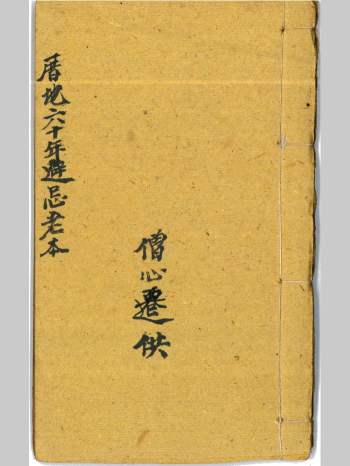 厝地六十年避忌老本
僧心遷供